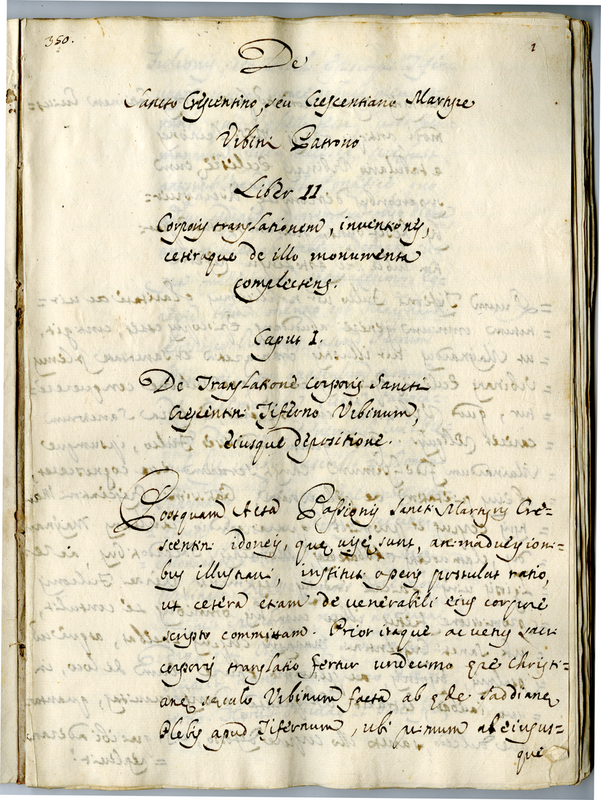 350.
1
De
Sancto Crescentino, seu Crescentiano Martyre
Vrbini Patrono
Liber II
Corporis translationem, inventionis,
ceteraque de illo monumenta
complectens.
Caput I.
De Translatione corporis Sancti
Crescentini Tiferno Vrbinum,
eiusque depositione.
Postquam Acta Passionis Sancti Martyris Cre=
scentini idoneis, que visę sunt, animadversioni=
bus illustravi, instituti operis postulat ratio,
ut cetera etiam de venerabili eius corpore
scripto committam. Prior itaque ac vetus sacri
corporis translatio fertur undecimo Christi=
anę sęculo Vrbinum facta ab Saddianę
Plebis apud Tifernum, ubi unum ab eiusus=
que